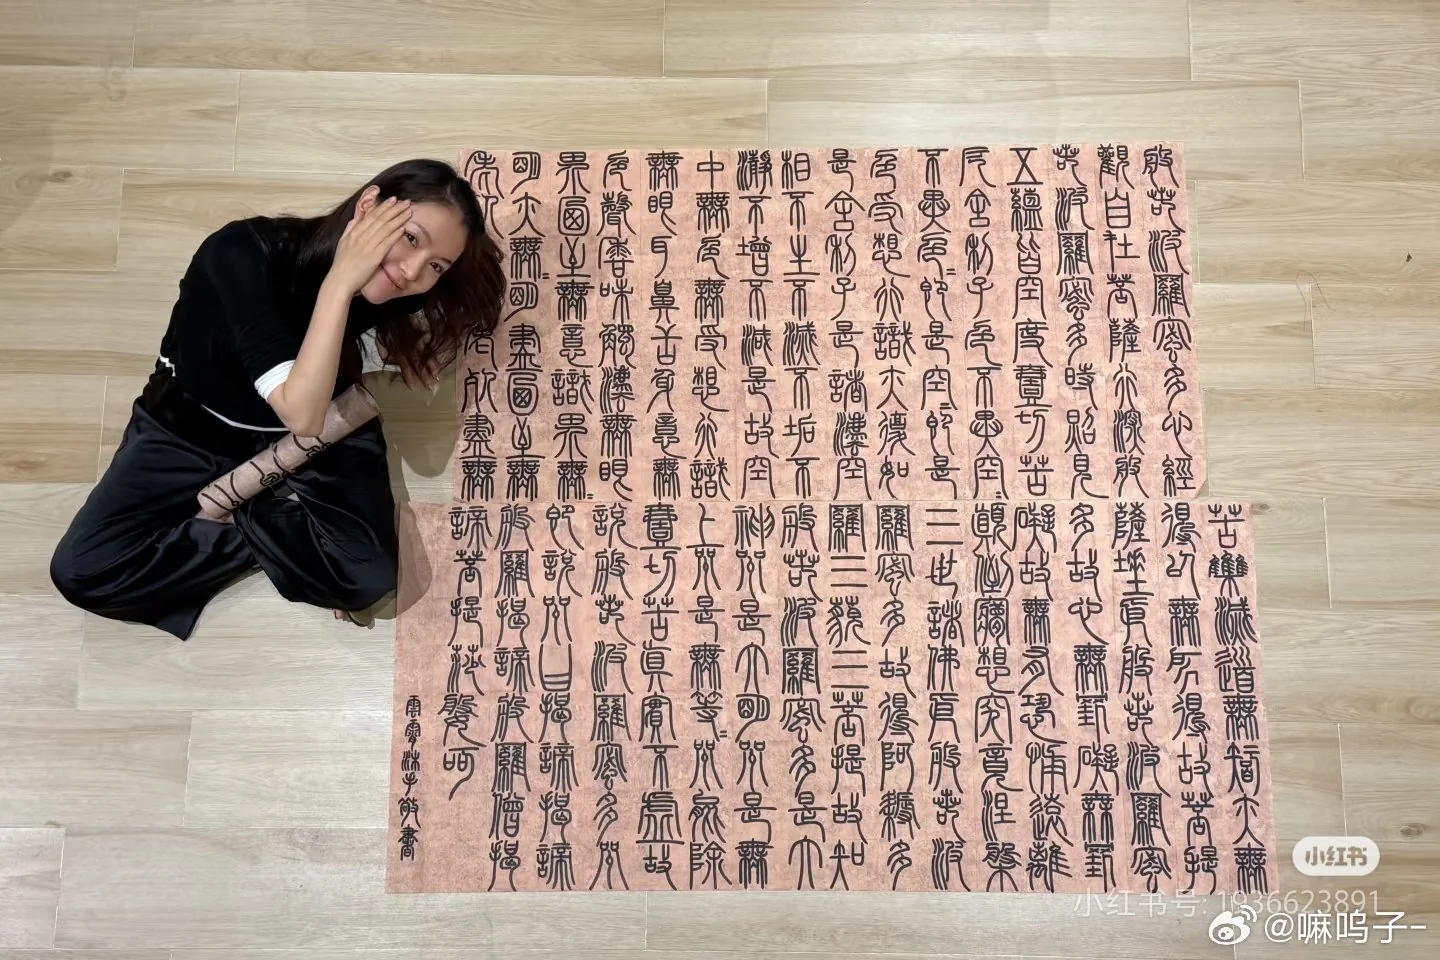 般若波羅蜜多心經
觀自在菩薩行深般
若波羅蜜多時照見
五蘊皆空度壹切苦
厄舍利子色不異空=
不異色=即是空=即是
色受想行識亦復如
是舍利子是諸法空
相不生不滅不垢不
瀞不增不減是故空
中無色無受想行識
無眼耳鼻舌身意無
色聲香味觸法無眼
界乃至無意識界無=
明亦無=明盡乃至無
老死盡無
苦集滅道無智亦無
得以無所得故菩提
薩埵依般若波羅蜜
多故心無罣礙無罣
礙故無有恐怖遠離
顛倒夢想究竟涅槃
三世諸佛依般若波
羅蜜多故得阿耨多
羅三藐三菩提故知
般若波羅蜜多是大
神咒是大明咒是無
上咒是無等=咒能除
壹切苦真實不虛故
說般若波羅蜜多咒
即說咒曰揭諦揭諦
般羅揭諦般羅僧揭
諦菩提莎婆訶
沐手敬書
小红书
小红书号: 1936623891
@嘛呜子-